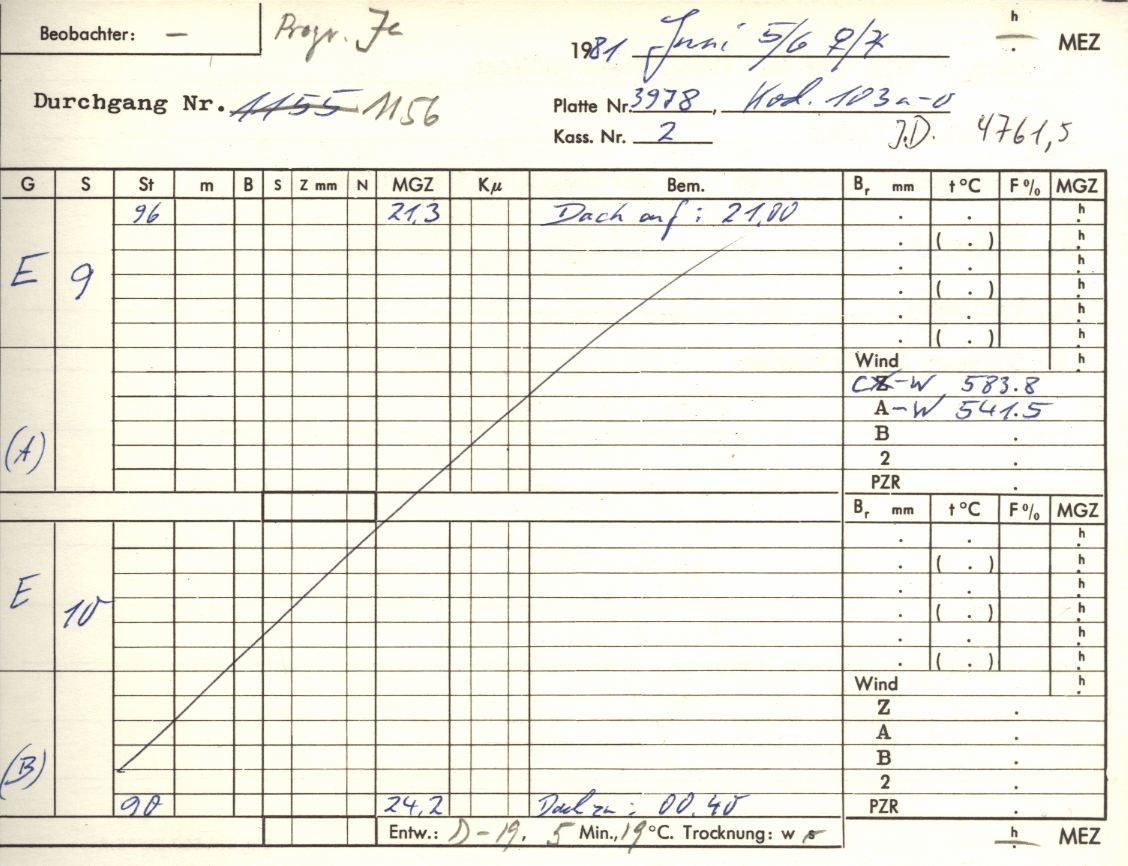 Beobachter: — Progr. 7a
h
. MEZ
1981 Juni 5/6 ♀/♄
Durchgang Nr. 1155 1156
Platte Nr. 3978, Kod. 103a-O
Kass. Nr. 2
J.D. 4761,5
G S St m B S Z mm N MGZ Kμ Bem. Br mm t °C F% MGZ
96 21,3 Dach auf: 21,00 . . h
. ( . ) h
E 9 . . h
. ( . ) h
. . h
. ( . ) h
Wind h
Z-W 583.8
A-W 541.5
(A) B .
2 .
PZR .
Br mm t °C F% MGZ
. . h
. ( . ) h
E 10 . . h
. ( . ) h
. . h
. ( . ) h
Wind h
Z .
A .
(B) B .
2 .
90 24,2 Dach zu: 00.40 PZR .
Entw.: D-19. 5 Min., 19 °C. Trocknung: w s h MEZ